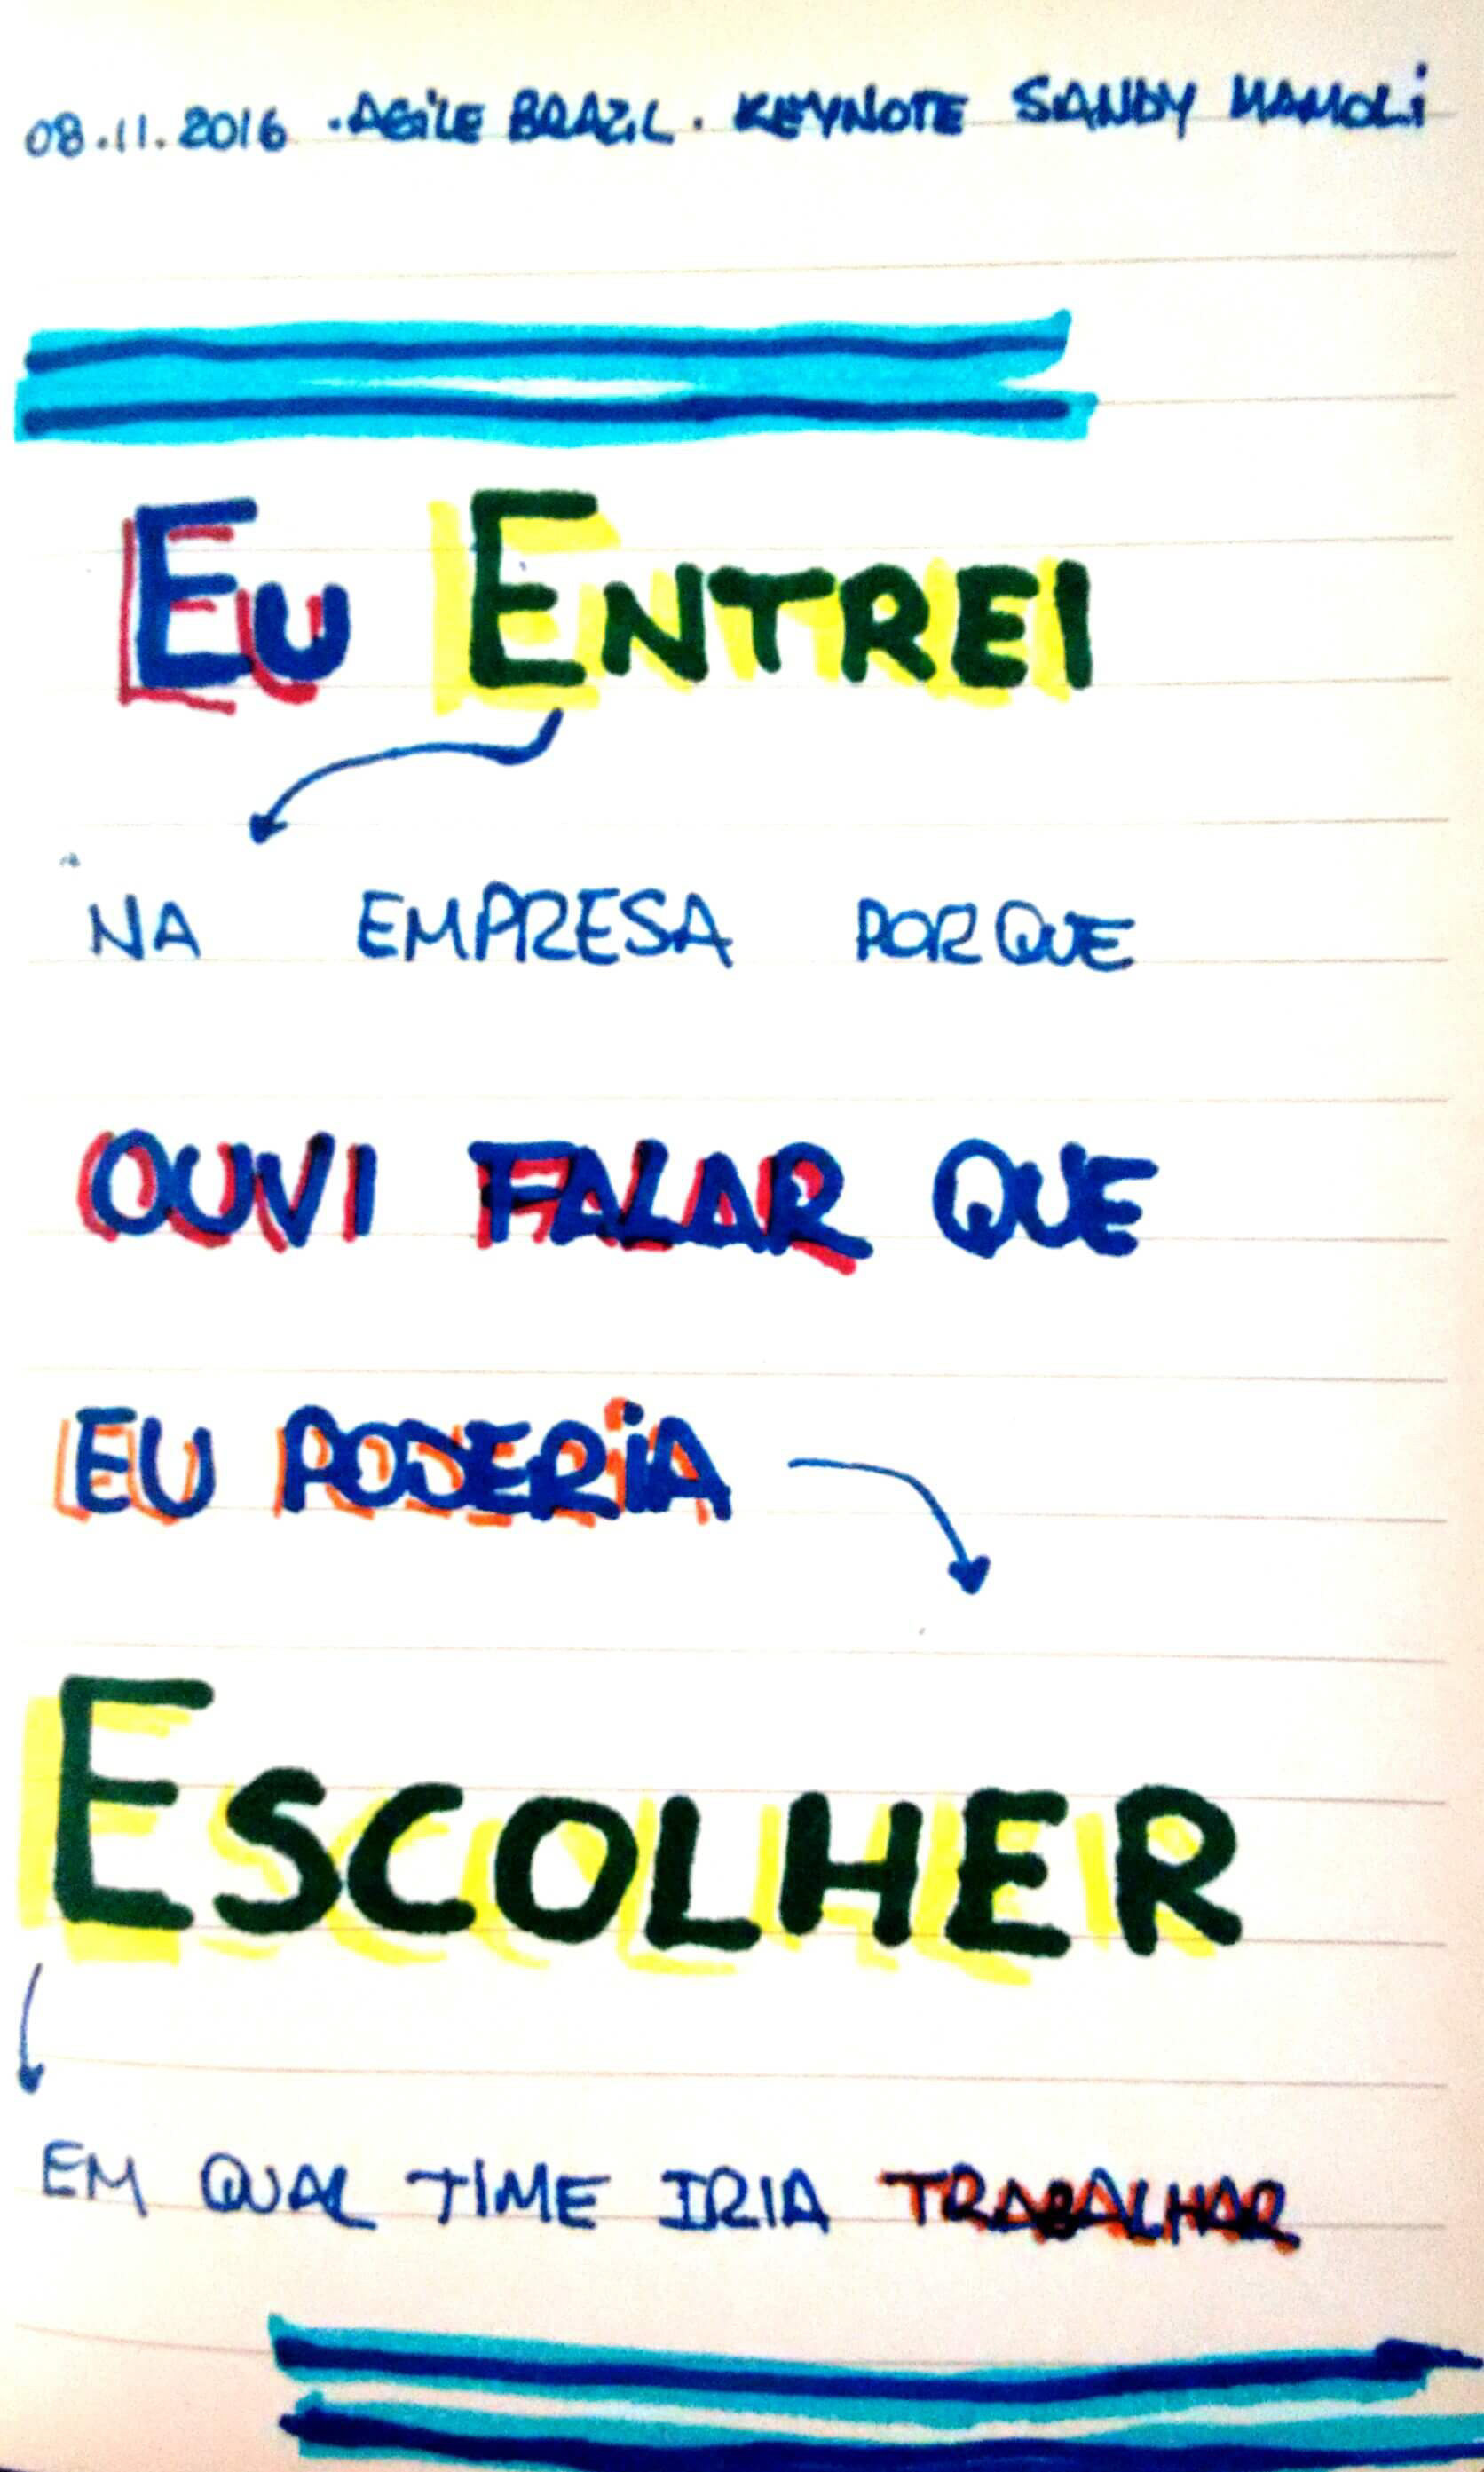 08.11.2016 . AGiLE BRAZiL . KEYNOTE SANDY MAMOLi
EU ENTREI
NA EMPRESA PORQUE
OUVI FALAR QUE
EU PODERiA
ESCOLHER
EM QUAL TIME IRIA TRABALHAR